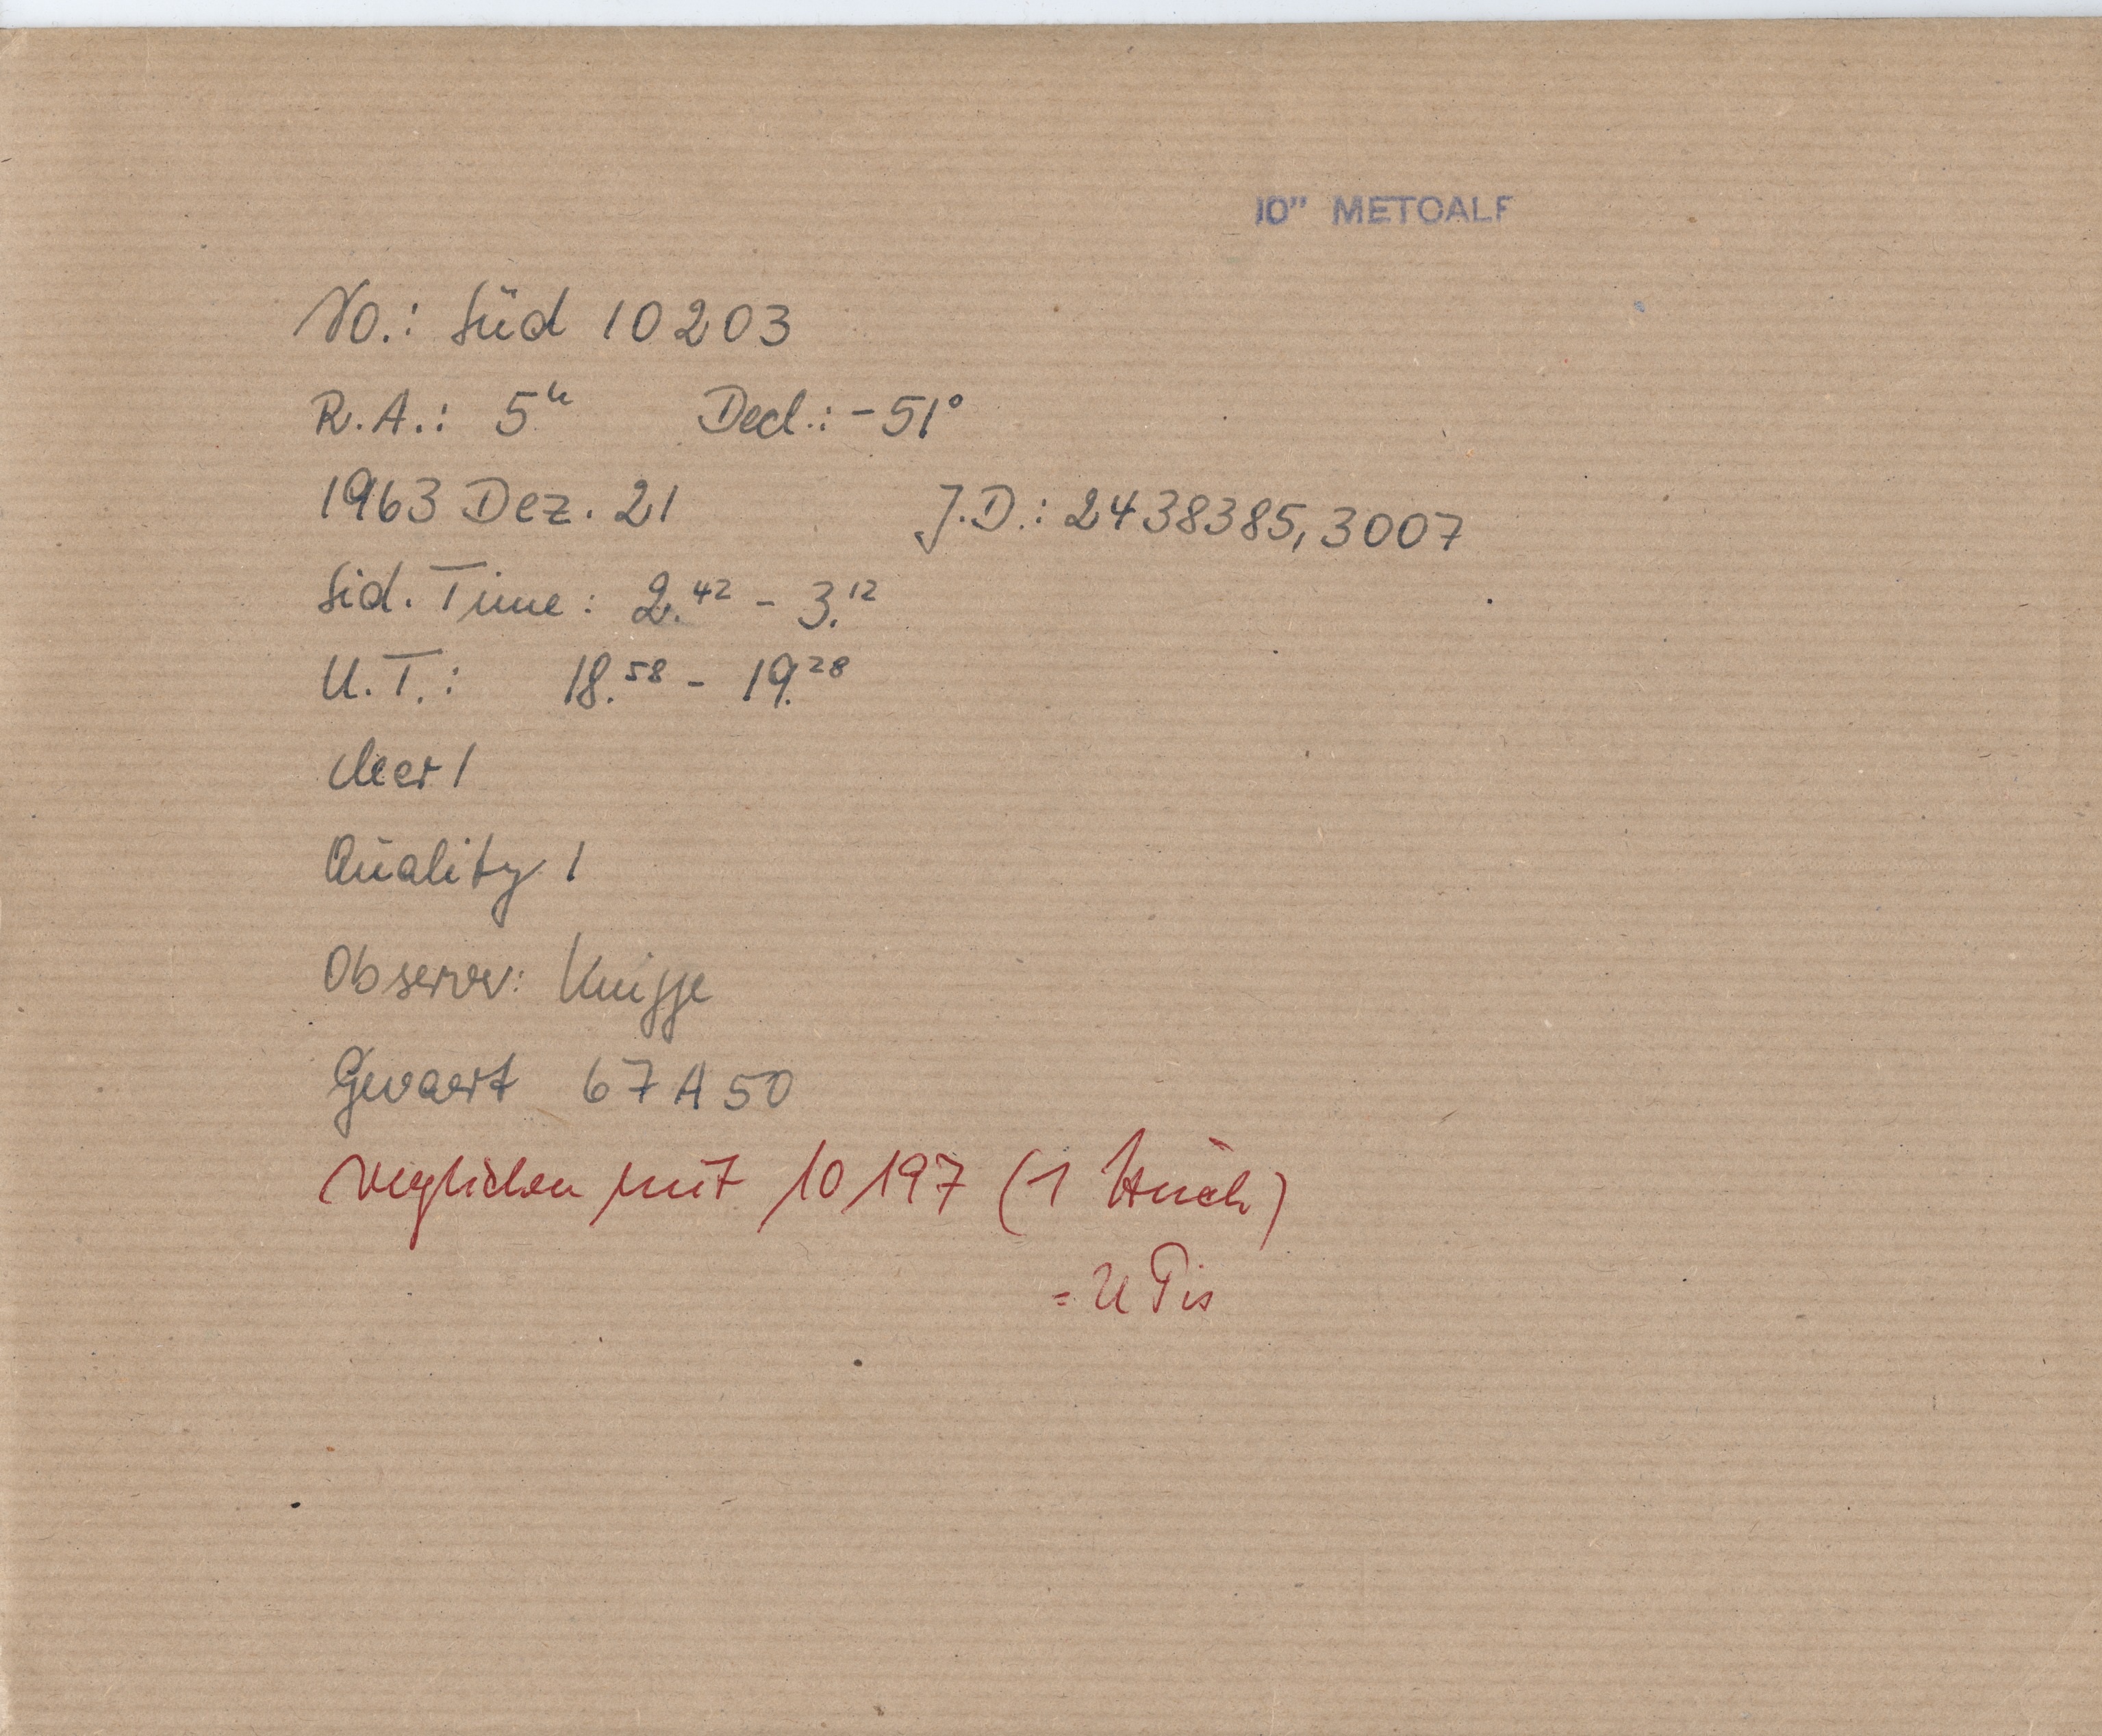 10" METCALF
No.: Süd 10203
R.A.: 5h Decl.: -51°
1963 Dez. 21 J.D.: 2438385,3007
Sid. Time: 2.42 - 3.12
U.T.: 18.58 - 19.28
cleer 1
Quality 1
Observer: Knigge
Gevaert 67A50
verglichen mit 10197 (1 Stück)
= U Pis